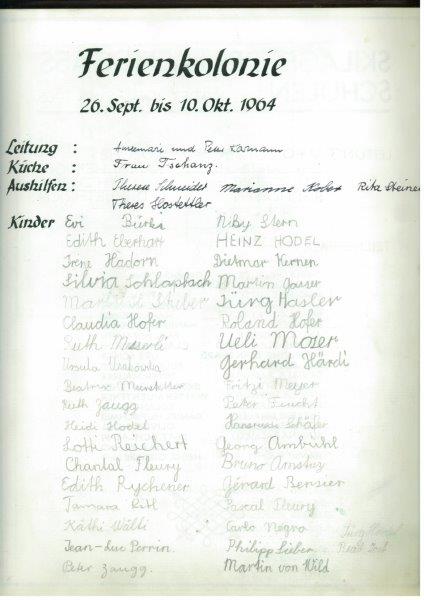 Ferienkolonie
26. Sept. bis 10. Okt. 1964
Leitung : Annemarie und Peter
Küche : Frau Tschanz.
Aushilfen : Therese Schneider Marianne Kober Rita Steiner
Theres Hostettler
Kinder Evi Bürki Niby Stern
Edith Eberhart HEINZ HODEL
Irene Hadorn Dietmar Kernen
Silvia Schlapbach Martin Gasser
Jürg Hasler
Claudia Hofer Roland Hofer
Ruth Ueli Moser
Ursula Gerhard Härdi
Beatrice Fritzi Meyer
Ruth Zaugg Peter Feucht
Heidi Hodel Hansruedi Schäfer
Lotti Reichert Georg Ambühl
Chantal Fleury Bruno Amstuz
Edith Rychener Gérard Bensier
Tamara Pascal Fleury
Käthi Wälti Carlo Negro
Jean-Luc Perrin. Philipp Lieber
Peter Zaugg. Martin von Wild